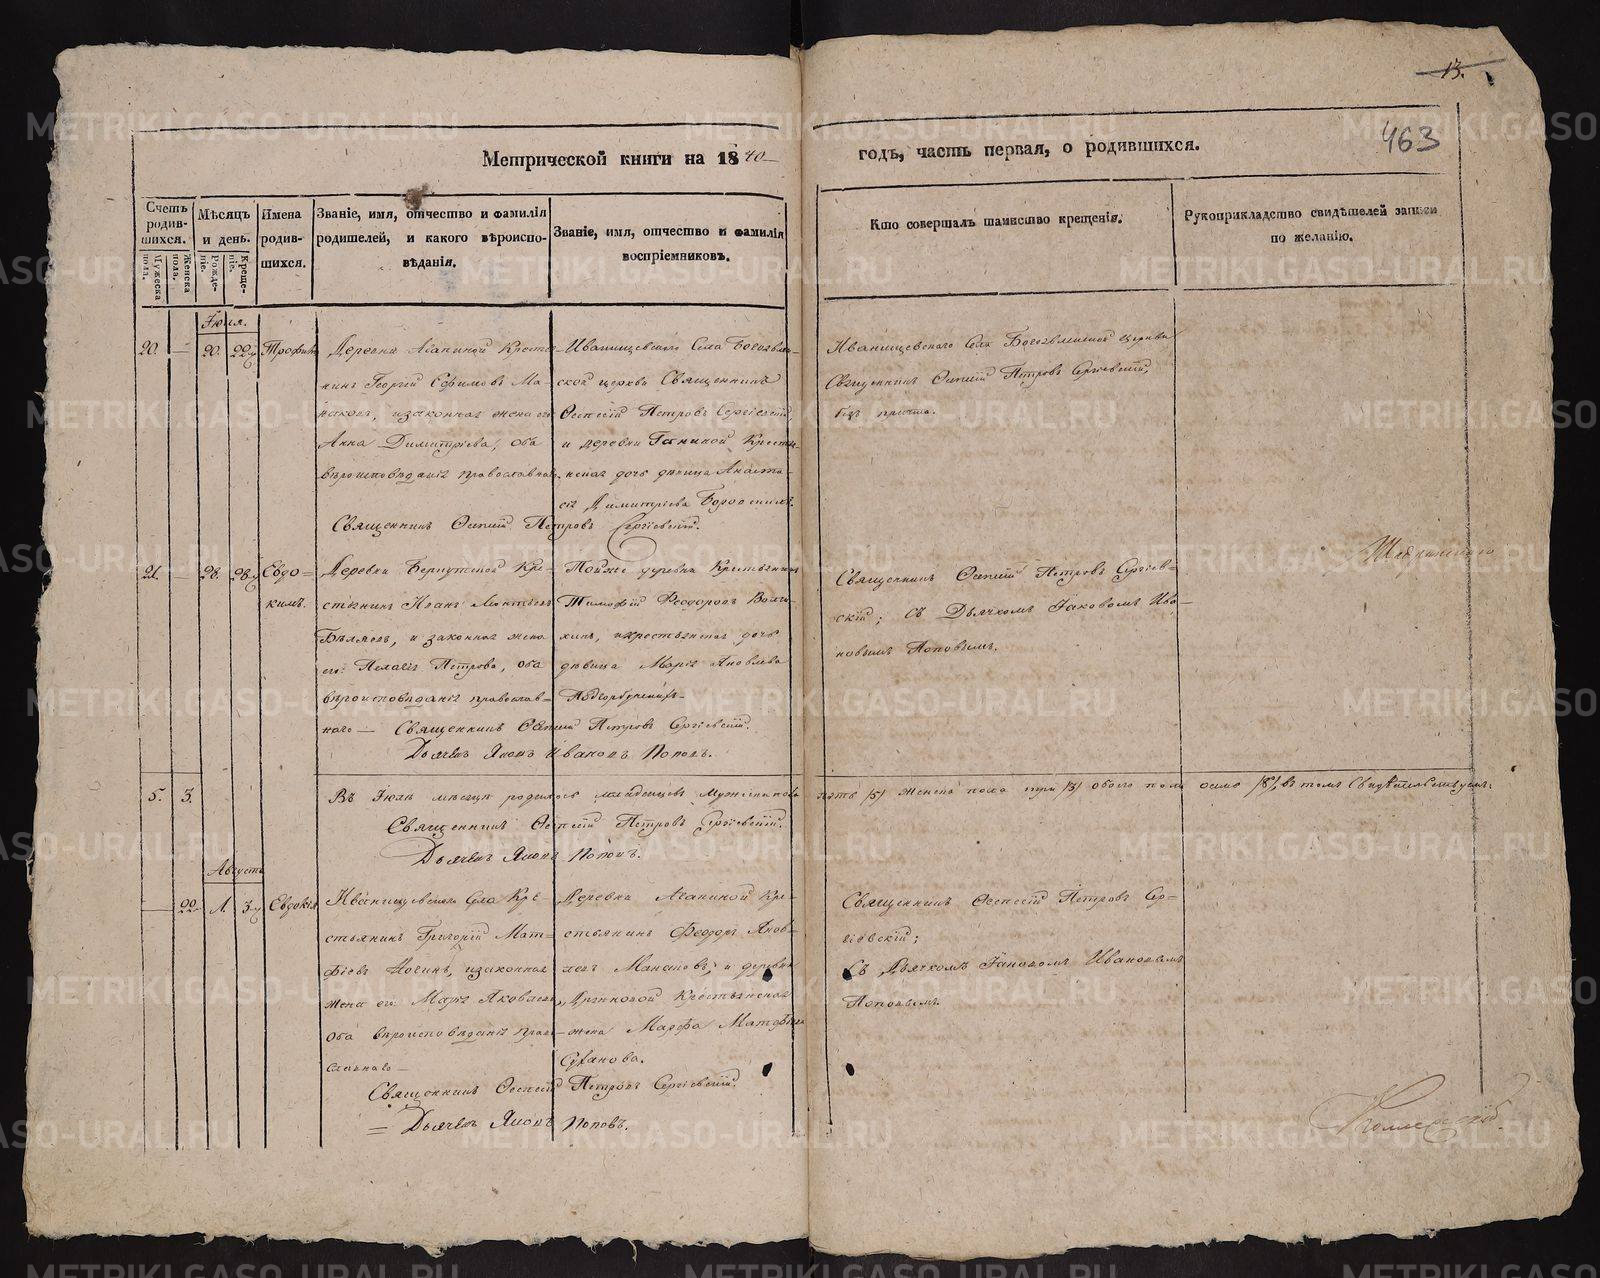 13.
463
Метрической книги на 1840
годъ, часть первая, о родившихся.
Счетъ родив-шихся.
Мужеска пола.
Женска пола.
Мѣсяцъ и день.
Рожде-ніе.
Креще-ніе.
Имена родив-шихся.
Званіе, имя, отчество и фамилія родителей, и какого вѣроиспо-вѣданія.
Званіе, имя, отчество и фамилія воспріемниковъ.
Кто совершалъ таинство крещенія.
Рукоприкладство свидѣтелей записи по желанію.
Іюля.
20. — 20. 22
Трофимъ
Деревни Аганиной Крестья-
нинъ Георгій Ефимовъ Ма-
наковъ, и законная жена его
Анна Димитріева, оба
вѣроисповѣданія православнаго.
Иванищевскаго Села Богоявлен-
ской церкви Священникъ
Петровъ Сергіевскій
и деревни Ганиной Крестья-
нская дочь дѣвица Анаста-
сія Димитріева
Священникъ Петровъ Сергіевскій.
Иванищевскаго Села Богоявленской церкви
Священникъ Петровъ Сергіевскій,
безъ причта.
21. — 28. 28
Евдо-
кимъ.
Деревни Кре-
стьянинъ Иванъ Леонтьевъ
Бѣляевъ, и законная жена
его Пелагія Петрова, оба
вѣроисповѣданія православ-
наго — Священникъ Петровъ Сергіевскій.
Дьячекъ Яковъ Ивановъ Поповъ.
Тойже деревни Крестьянинъ
Тимофей Феодоровъ
и крестьянская дочь
дѣвица Марія Яковлева
Священникъ Петровъ Сергіев-
скій; съ Дьячкомъ Іаковомъ Ива-
новымъ Поповымъ.
5. 3.
Въ Іюлѣ мѣсяцѣ родилось младенцевъ Мужеска пола пять /5/ Женска пола три /3/ обоего пола осмь /8/, въ томъ Свидѣтельствуемъ:
Священникъ Петровъ Сергіевскій.
Дьячекъ Яковъ Поповъ.
Августа
— 22 1. 3
Евдокія
Иванищевскаго Села Кре-
стьянинъ Григорій Мат-
фіевъ и законная
жена его Марія Яковлева,
оба вѣроисповѣданія право-
славнаго —
Деревни Аганиной Кре-
стьянинъ Феодоръ Яков-
левъ Манаковъ, и деревни
Крестьянская
жена Марфа Матфіева
Суханова.
Священникъ Петровъ Сергіевскій.
Дьячекъ Яковъ Поповъ.
Священникъ Петровъ Сер-
гіевскій;
Съ Дьячкомъ Іаковомъ Ивановымъ
Поповымъ.
METRIKI.GASO-URAL.RU